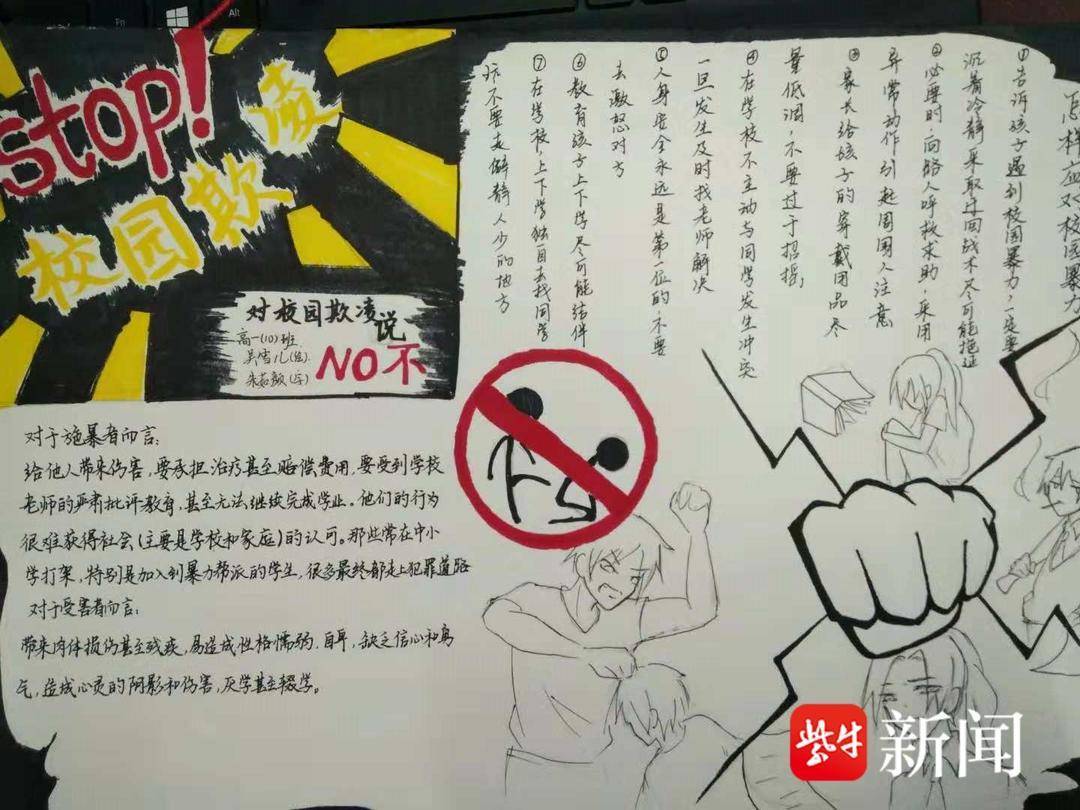 Fn
Alt
stop!
校园欺凌
对校园欺凌说
NO不
高一(10)班
对于施暴者而言:
给他人带来伤害,要承担治疗甚至赔偿费用,要受到学校
老师的严肃批评教育,甚至无法继续完成学业。他们的行为
很难获得社会(主要是学校和家庭)的认可。那些常在中小
学打架,特别是加入到暴力帮派的学生,很多最终都走上犯罪道路
对于受害者而言:
带来肉体损伤甚至残疾,易造成性格懦弱、自卑,缺乏信心和勇
气,造成心灵的阴影和伤害,厌学甚至辍学。
怎样应对校园暴力
①告诉孩子遇到校园暴力,一定要
沉着冷静采取迂回战术尽可能拖延
②必要时,向路人呼救求助,采用
异常动作引起周围人注意
③家长给孩子的穿戴用品尽
量低调,不要过于招摇,
④在学校不主动与同学发生冲突
一旦发生及时找老师解决
⑤人身安全永远是第一位的,不要
去激怒对方
⑥教育孩子上下学尽可能结伴
⑦在学校,上下学独自去找同学
玩不要走僻静人少的地方
紫牛新闻